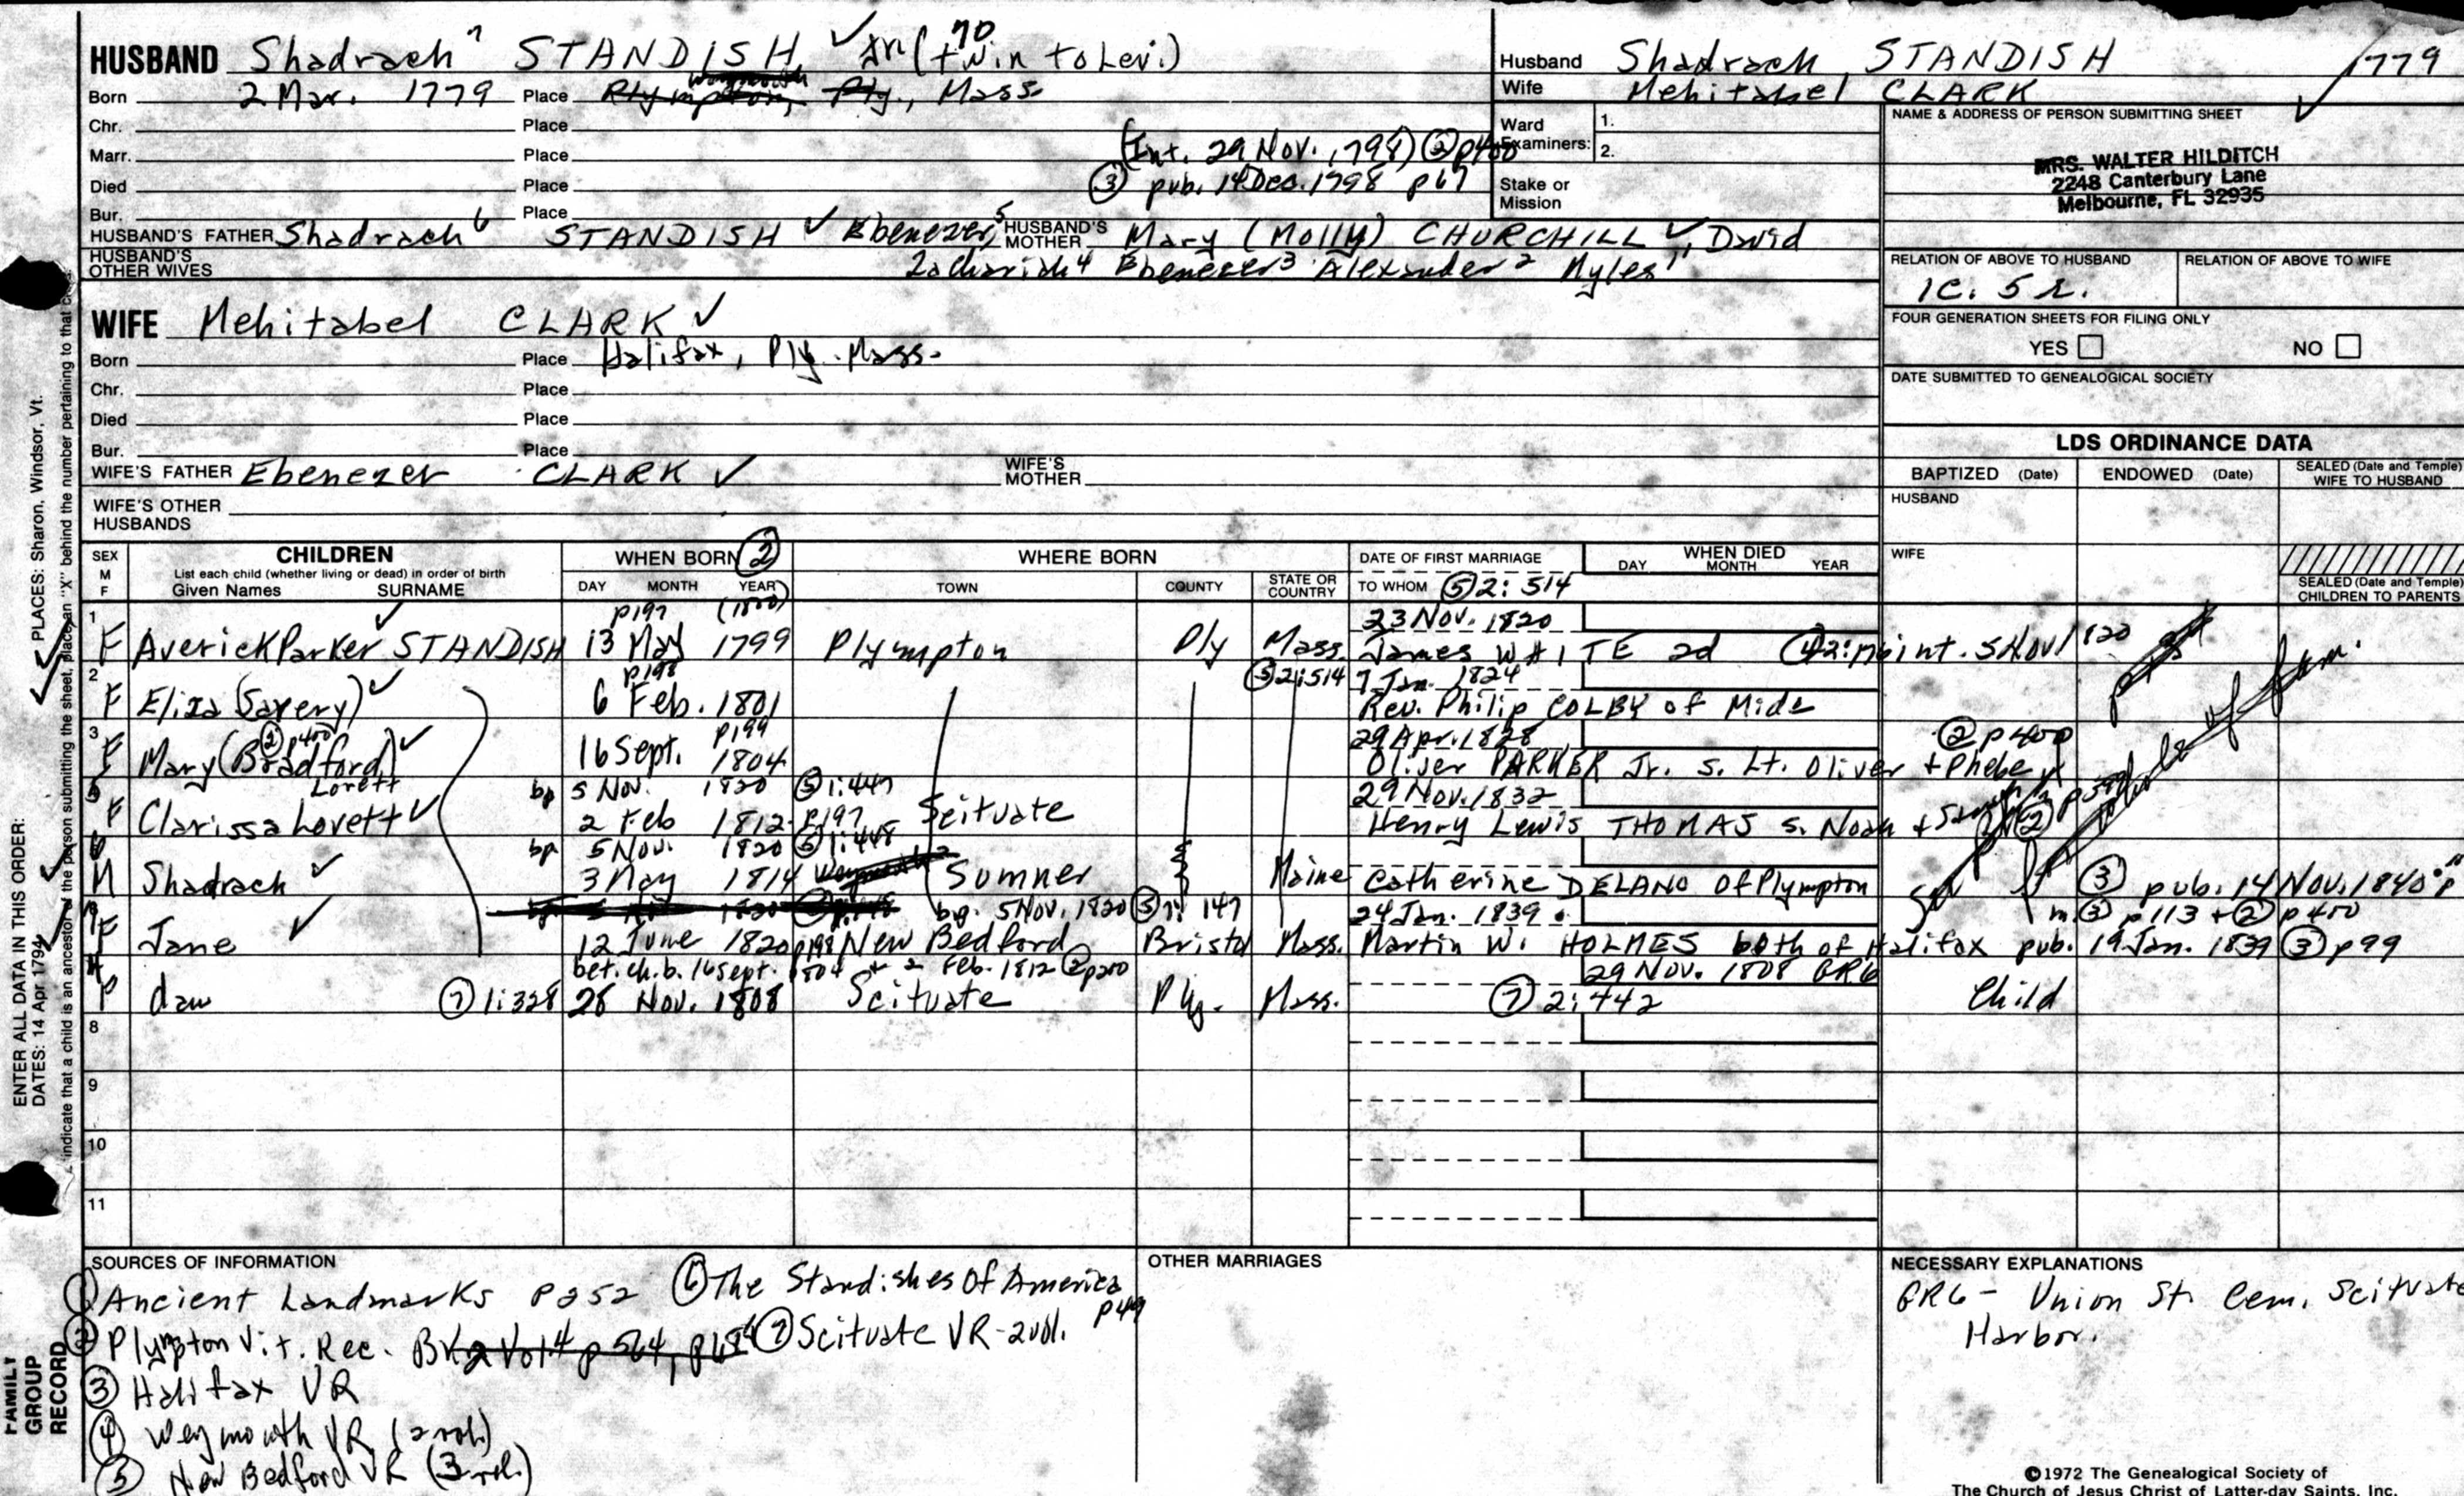 HUSBAND Shadrach 7 STANDISH Jr. (twin to Levi) 70
Born 2 Mar. 1779 Place Plympton, Ply., Mass. Weymouth
Chr. Place
Marr. Place (Int. 29 Nov. 1798) ② p400
Died Place ③ pub. 14 Dec. 1798 p67
Bur. Place
HUSBAND'S FATHER Shadrach 6 STANDISH Ebenezer 5 HUSBAND'S MOTHER Mary (Molly) CHURCHILL, David
HUSBAND'S OTHER WIVES Zachariah 4 Ebenezer 3 Alexander 2 Myles 1
Husband Shadrach STANDISH 1779
Wife Mehitabel CLARK
Ward Examiners: 1. 2.
Stake or Mission
NAME & ADDRESS OF PERSON SUBMITTING SHEET
MRS. WALTER HILDITCH
2248 Canterbury Lane
Melbourne, FL 32935
RELATION OF ABOVE TO HUSBAND RELATION OF ABOVE TO WIFE
1C. 5 r.
FOUR GENERATION SHEETS FOR FILING ONLY
YES NO
DATE SUBMITTED TO GENEALOGICAL SOCIETY
WIFE Mehitabel CLARK
Born Place Halifax, Ply. Mass.
Chr. Place
Died Place
Bur. Place
WIFE'S FATHER Ebenezer CLARK WIFE'S MOTHER
WIFE'S OTHER HUSBANDS
LDS ORDINANCE DATA
BAPTIZED (Date) ENDOWED (Date) SEALED (Date and Temple) WIFE TO HUSBAND
HUSBAND
WIFE
SEALED (Date and Temple) CHILDREN TO PARENTS
SEX M F CHILDREN WHEN BORN ② WHERE BORN DATE OF FIRST MARRIAGE WHEN DIED
List each child (whether living or dead) in order of birth
Given Names SURNAME DAY MONTH YEAR TOWN COUNTY STATE OR COUNTRY TO WHOM ⑤ 2:514 DAY MONTH YEAR
p197 (1800) 23 Nov. 1820
1 F Averick Parker STANDISH 13 May 1799 Plympton Ply Mass. James WHITE 2d int. 5 Nov 1820
p198 ⑤ 2:514 7 Jan. 1824
2 F Eliza (Savery) 6 Feb. 1801 Rev. Philip COLBY of Mid
② p400 p199 29 Apr. 1828 ② p400
3 F Mary (Bradford) 16 Sept. 1804 Oliver PARKER Jr. s. Lt. Oliver + Phebe
Lorett bp 5 Nov. 1820 ⑤ 1:447 29 Nov. 1832
F Clarissa Lovett 2 Feb 1812 p197 Scituate Henry Lewis THOMAS s. Noah +
bp 5 Nov. 1820 ⑤ 1:448
M Shadrach 3 May 1814 Sumner Maine Catherine DELANO of Plympton ③ pub. 14 Nov. 1840
bp. 5 Nov. 1820 ⑤ 1: 147 24 Jan. 1839 m. ③ p113 + ② p400
F Jane 12 June 1820 p198 New Bedford Bristol Mass. Martin W. HOLMES both of Halifax pub. 19 Jan. 1839 ③ p99
bet. ch. b. 16 Sept. 1804 + 2 Feb. 1812 ② p200 29 Nov. 1808 GR6
F daw ⑦ 1:328 28 Nov. 1808 Scituate Ply. Mass. ⑦ 2:442 Child
8
9
10
11
SOURCES OF INFORMATION
① Ancient Landmarks p252 ⑥ The Standishes of America p49
② Plympton Vit. Rec. Bk 2 Vol 4 p 564, ⑦ Scituate VR - 2 vol.
③ Halifax VR
④ Weymouth VR (2 vol.)
⑤ New Bedford VR (3 vol.)
OTHER MARRIAGES
NECESSARY EXPLANATIONS
GR6 - Union St. Cem. Scituate
Harbor.
©1972 The Genealogical Society of
The Church of Jesus Christ of Latter-day Saints, Inc.
ENTER ALL DATA IN THIS ORDER:
PLACES: Sharon, Windsor, Vt.
DATES: 14 Apr 1794
indicate that a child is an ancestor of the person submitting the sheet, place an "X" behind the number pertaining to that
FAMILY
GROUP
RECORD